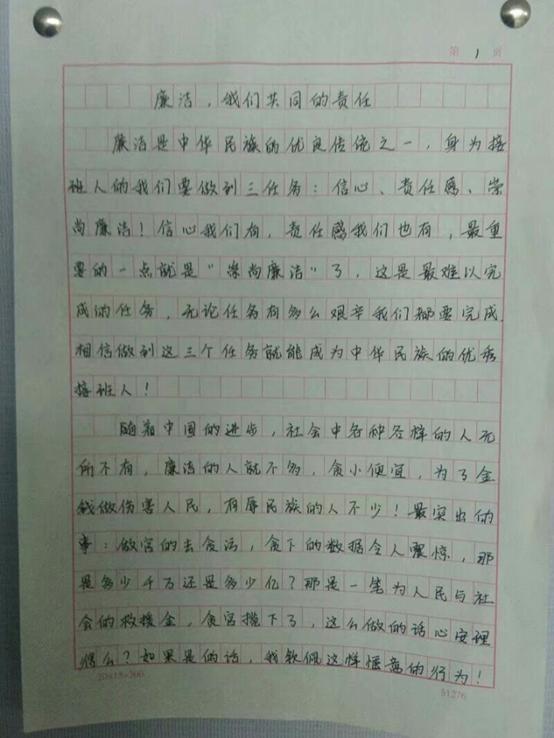 第 1 页
廉洁，我们共同的责任
廉洁是中华民族的优良传统之一，身为接
班人的我们要做到三任务：信心、责任感、崇
尚廉洁！信心我们有，责任感我们也有，最重
要的一点就是“崇尚廉洁”了，这是最难以完
成的任务，无论任务有多么艰辛我们都要完成，
相信做到这三个任务就能成为中华民族的优秀
接班人！
随着中国的进步，社会中各种各样的人无
所不有，廉洁的人就不多，贪小便宜，为了金
钱做伤害人民，有辱民族的人不少！最突出的
事：做官的去贪污，贪下的数据令人震惊，那
是多少千万还是多少亿？那是一笔为人民与社
会的救援金，贪官揽下了，这么做的话心安理
得么？如果是的话，我钦佩这样掩盖的行为！
20×15=300
51276